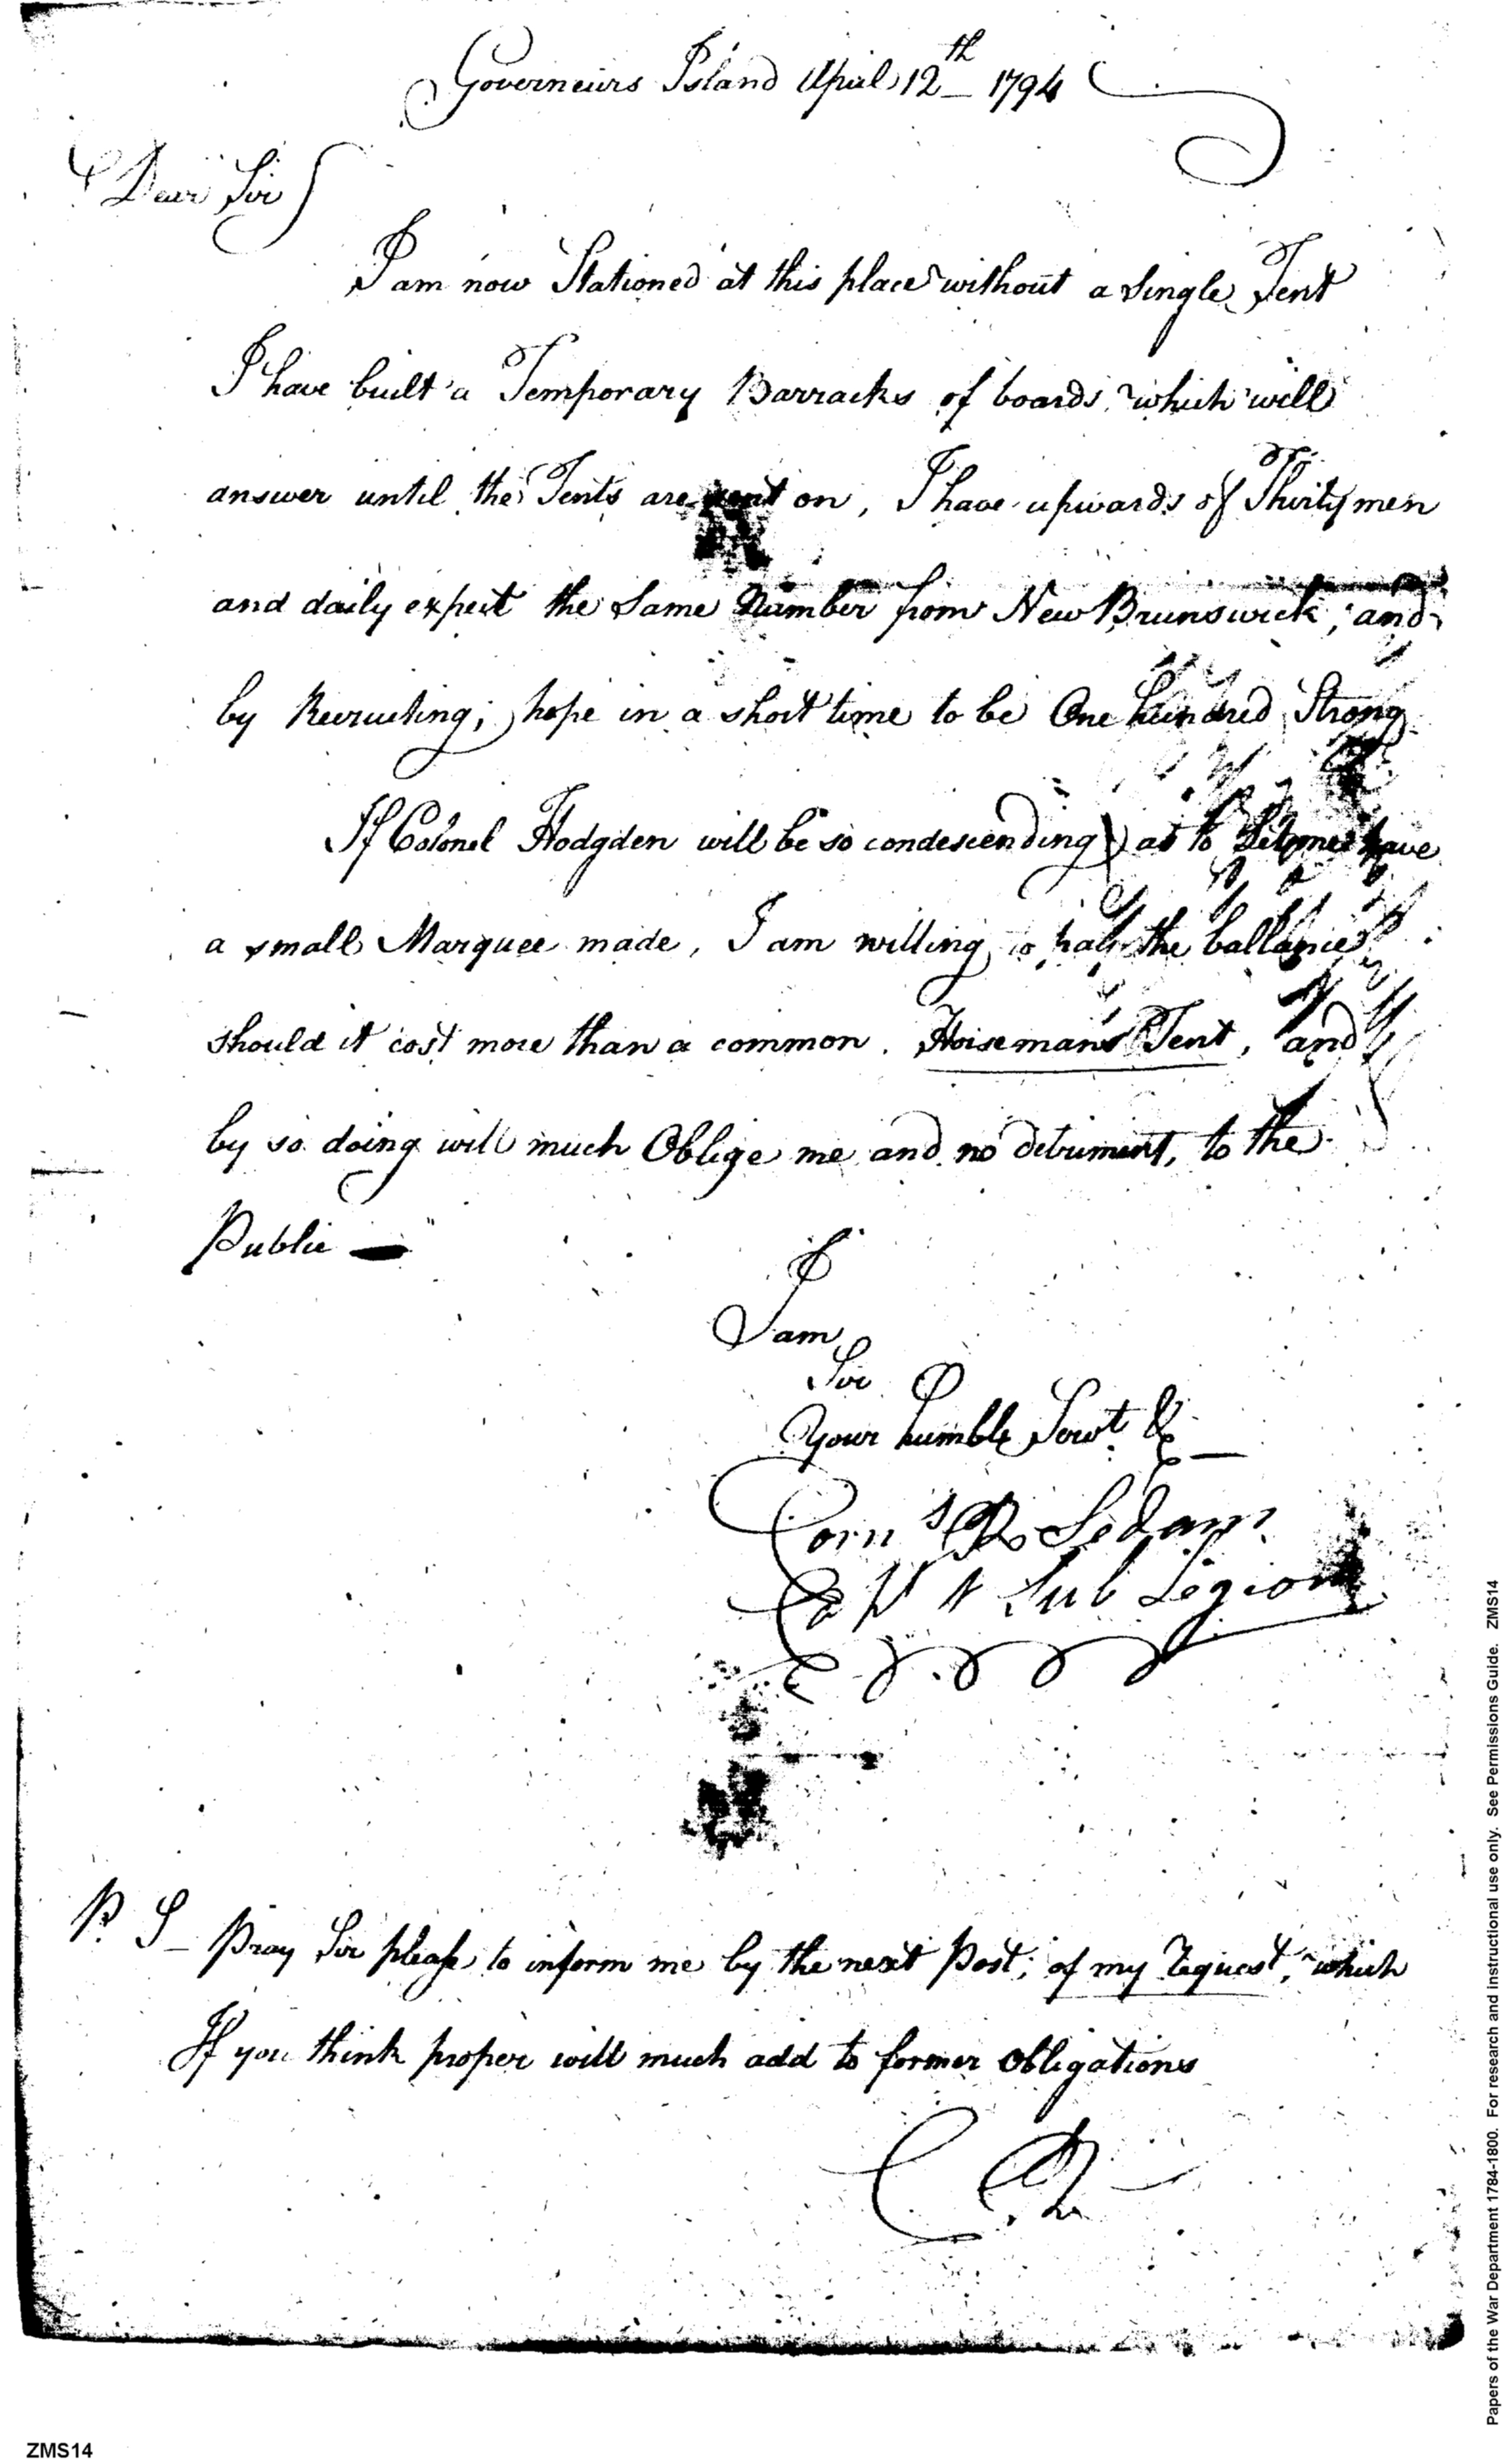 Governeurs Island April 12th 1794
Dear Sir
I am now Stationed at this place without a single Tent
I have built a Temporary Barracks of boards which will
answer until the Tents are sent on, I have upwards of Thirty men
and daily expect the Same Number from New Brunswick, and
by Recruiting; hope in a short time to be One hundred Strong
If Colonel Hodgden will be so condescending as to let me have
a small Marquee made, I am willing to pay the ballance
should it cost more than a common Horsemans Tent, and
by so doing will much Oblige me and no detriment, to the
Public —
I am
Sir
Your humble Servt &c
Corns R Sedam
Capt Sub Legion
P. S — Pray Sir please to inform me by the next Post, of my request, which
If you think proper will much add to former obligations
C R
Papers of the War Department 1784-1800. For research and instructional use only. See Permissions Guide. ZMS14
ZMS14